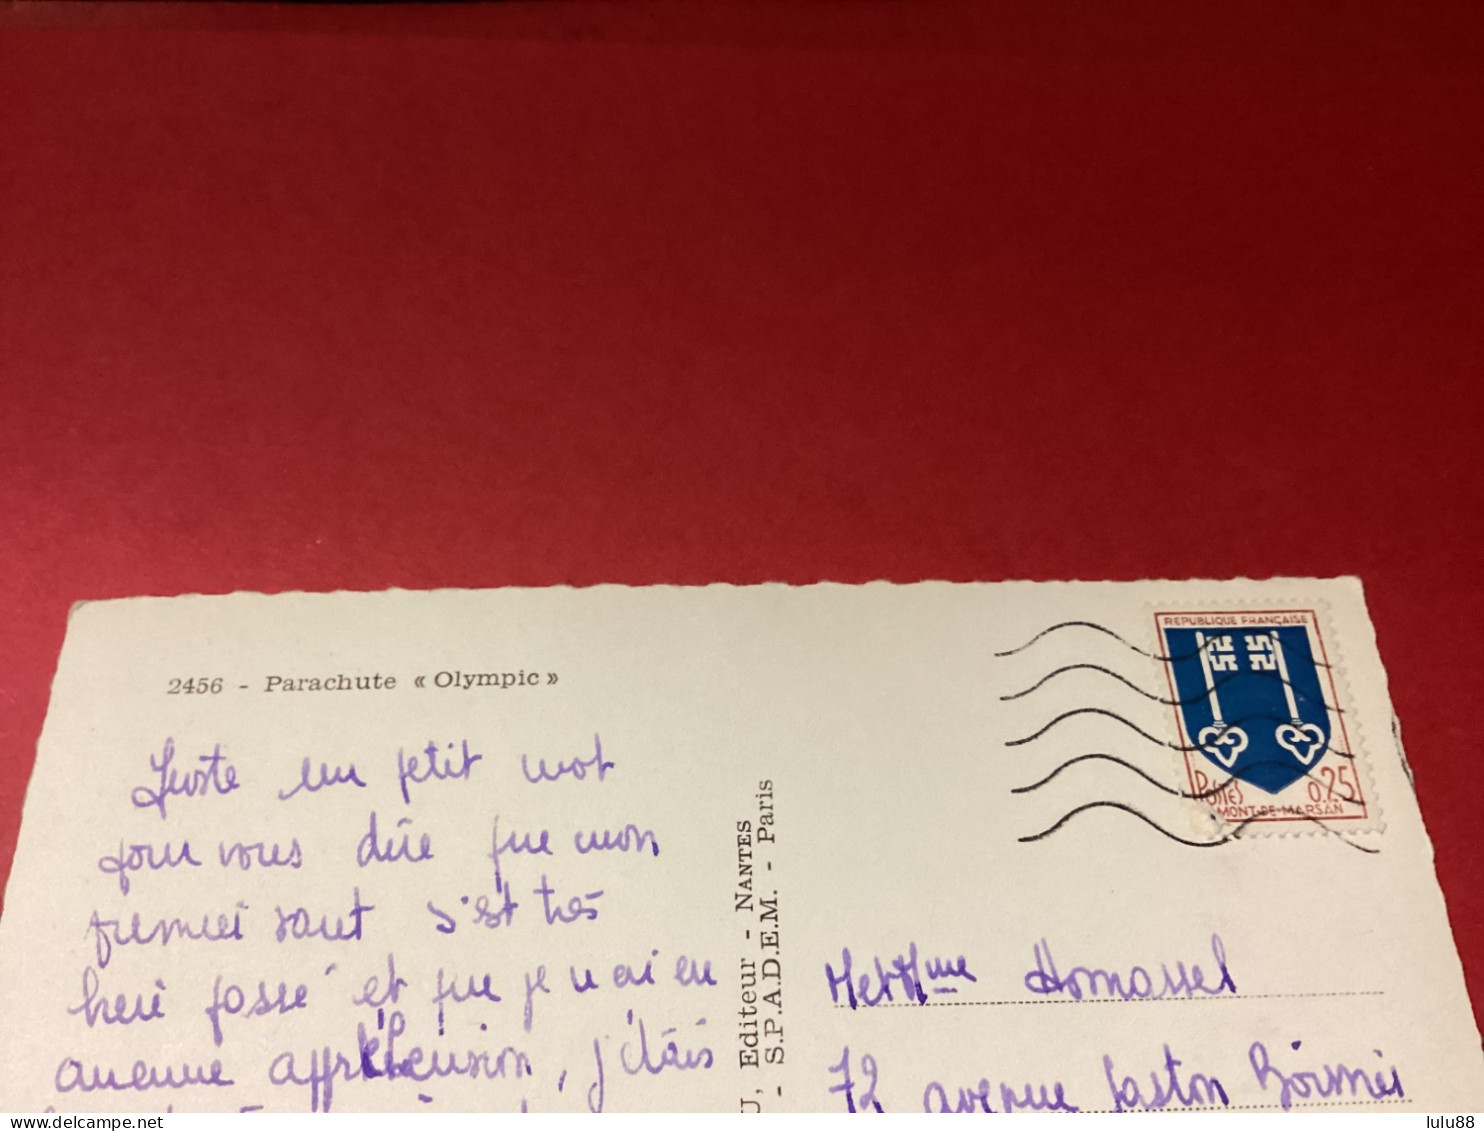 2456 - Parachute « Olympic »
Juste un petit mot
pour vous dire que mon
premier saut s'est très
bien passé et que je n'ai eu
aucune appréhension, j'étais
U, Editeur - NANTES
- S.P.A.D.E.M. - Paris
REPUBLIQUE FRANÇAISE
POSTES 0.25
MONT-DE-MARSAN
M et Mme Homassel
72 avenue Gaston Boissier
https://www.delcampe.net
lulu88